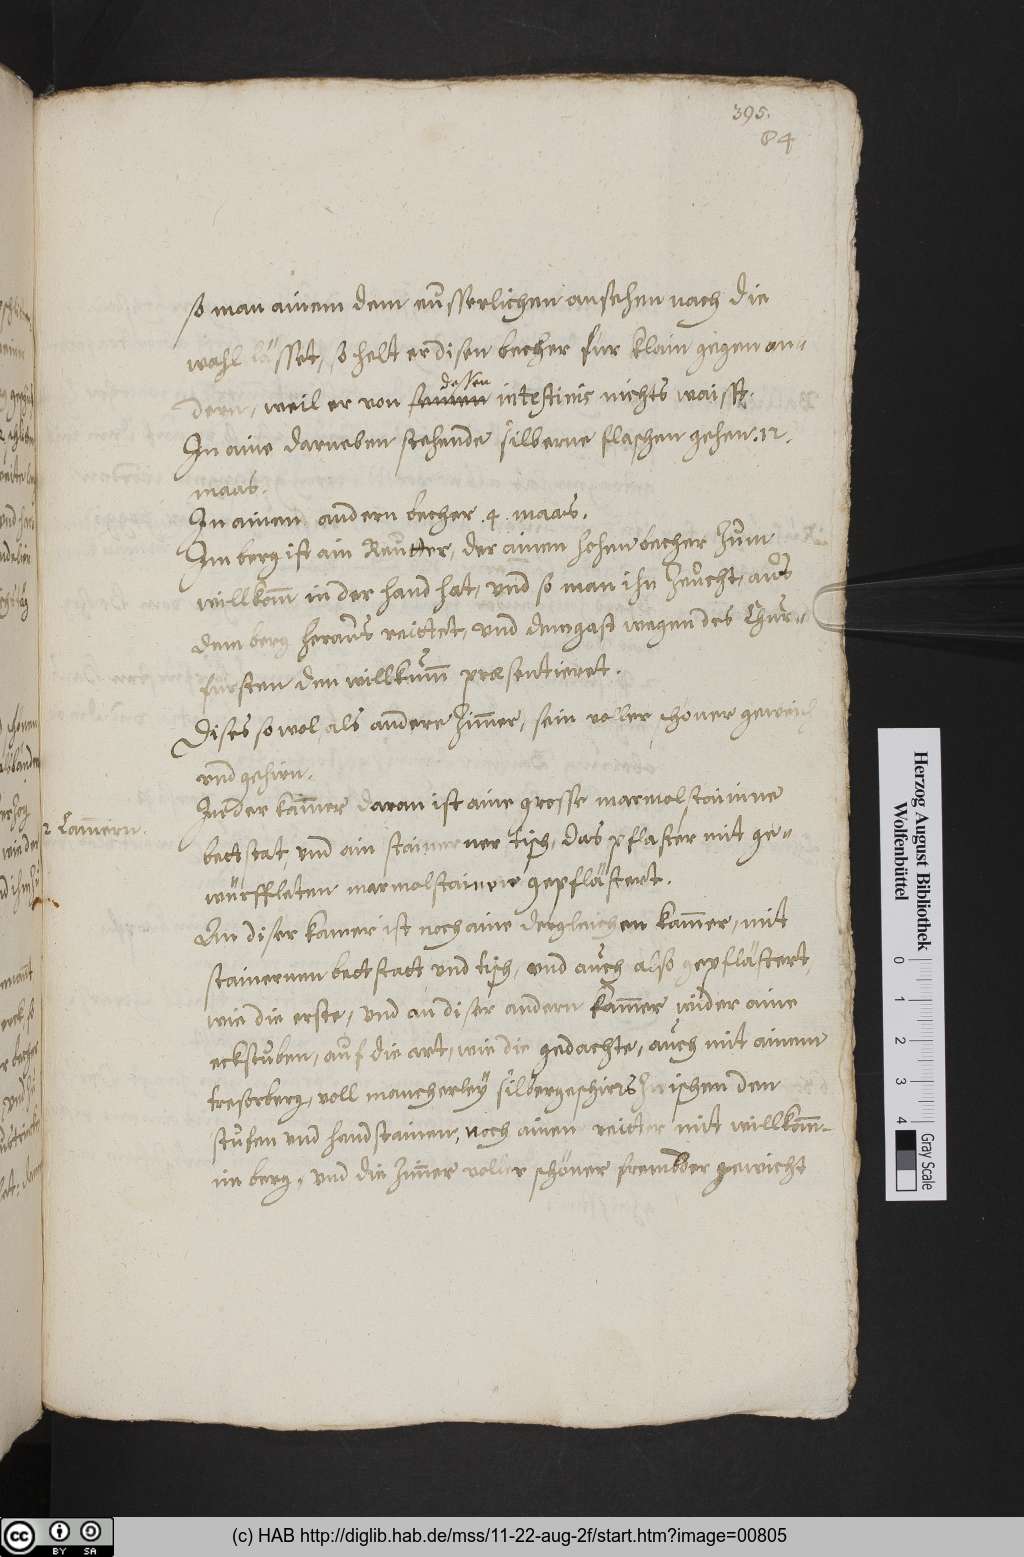 395.
84
so man ainem dem eüsserlichen ansehen nach die
wahl lässet, so helt er disen becher für klain gegen an-
dern, weil er von seinen dessen intestinis nichts waisst.
In aine darneben stehende silberne flaschen gehen .12.
maas.
In ainen andern becher .4. maas.
Im berg ist ain Reütter, der ainen hohen becher zum
willkom̄ in der hand hat, vnd so man ihn zeücht, aus
dem berg heraus reittet, vnd dem gast wegen des Chur-
fürsten den willkum̄ præsentieret.
Dises sowol als andere zim̄er, sein voller schoner geweich
vnd gehirn.
2 Cam̄ern.
In der kam̄er daran ist aine grosse marmolstainine
bettstat vnd ain stainerner tisch, das pflaster mit ge-
würffleten marmolstainen gepflästert.
An diser kamer ist noch aine dergleichen kam̄er, mit
stainernen bettstatt vnd tisch, vnd auch also gepflästert,
wie die erste, vnd an diser andern kam̄er wider aine
eckstuben, auf die art, wie die gedachte, auch mit ainem
tresorberg, voll mancherley silbergeschirrs zwischen den
stufen vnd handstainen, noch ainen reitter mit willkom̄-
im berg, vnd die zim̄er voller schöner frembder gewicht
Herzog August Bibliothek
Wolfenbüttel
0 1 2 3 4
Gray Scale
cc BY SA
(c) HAB http://diglib.hab.de/mss/11-22-aug-2f/start.htm?image=00805